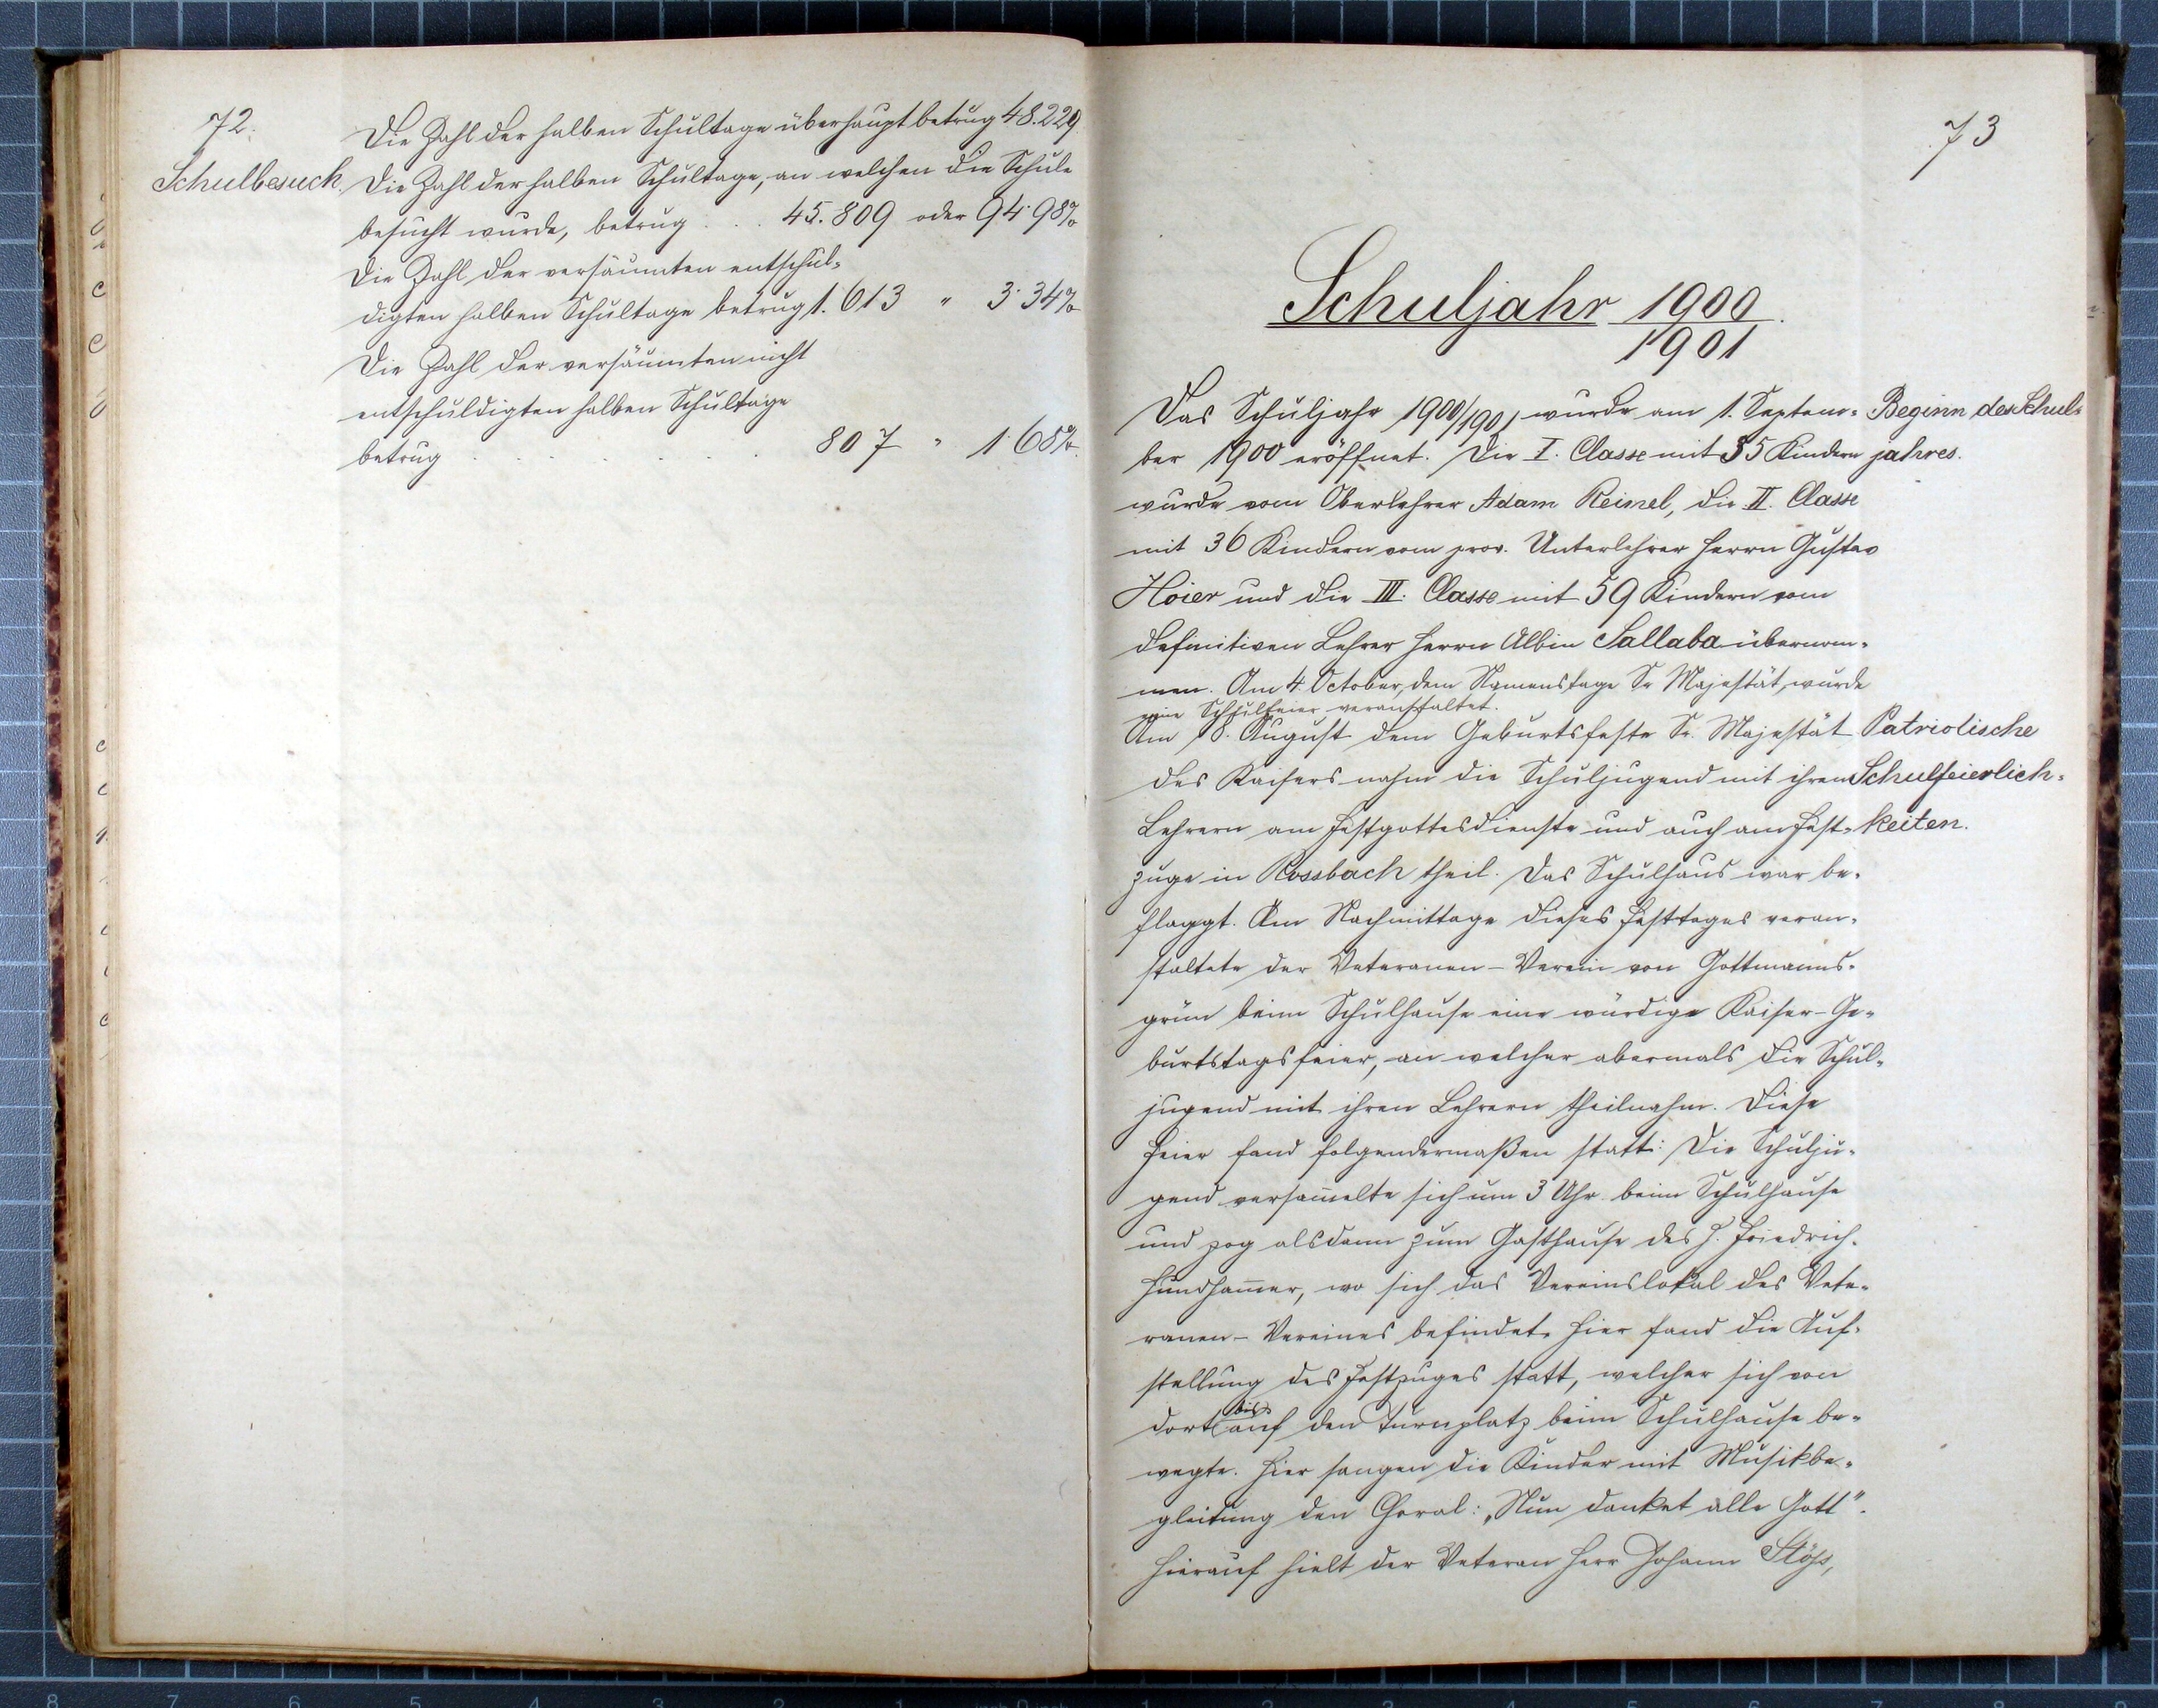 72.
Die Zahl der halben Schultage überhaupt betrug 48.229.
Schulbesuch. Die Zahl der halben Schultage, an welchen die Schule
besucht wurde, betrug . . . 45.809 oder 94·98%
Die Zahl der versäumten entschul-
digten halben Schultage betrug 1.613 " 3·34%
Die Zahl der versäumten nicht
entschuldigten halben Schultage
betrug . . . . . . 807 " 1·68%.
73
Schuljahr 1900
1901.
Das Schuljahr 1900/1901 wurde am 1. Septem- Beginn des Schul-
ber 1900 eröffnet. Die I. Classe mit 35 Kindern jahres.
wurde vom Oberlehrer Adam Reinel, die II. Classe
mit 36 Kindern vom prov. Unterlehrer Herrn Gustav
Hoier und die III. Classe mit 59 Kindern vom
definitiven Lehrer Herrn Albin Sallaba übernom-
men. Am 4. October, dem Namenstage Sr Majestät, wurde
eine Schulfeier veranstaltet.
Am 18. August dem Geburtsfeste Sr. Majestät Patriotische
des Kaisers nahm die Schuljugend mit ihren Schulfeierlich-
Lehrern am Festgottesdienste und auch am Fest- keiten.
zuge in Rossbach theil. Das Schulhaus war be-
flaggt. Am Nachmittage dieses Festtages veran-
staltete der Veteranen-Verein von Gottmanns-
grün beim Schulhause eine würdige Kaiser-Ge-
burtstagsfeier, an welcher abermals die Schul-
jugend mit ihren Lehrern theilnahm. Diese
Feier fand folgendermaßen statt: Die Schulju-
gend versam̅elte sich um 3 Uhr beim Schulhause
und zog alsdann zum Gasthause des H. Friedrich
Hundham̅er, wo sich das Vereinslokal des Vete-
ranen-Vereines befindet. Hier fand die Auf-
stellung des Festzuges statt, welcher sich von
dort bis auf den Turnplatz beim Schulhause be-
wegte. Hier sangen die Kinder mit Musikbe-
gleitung den Choral: „Nun danket alle Gott".
Hierauf hielt der Veteran Herr Johann Stöß,